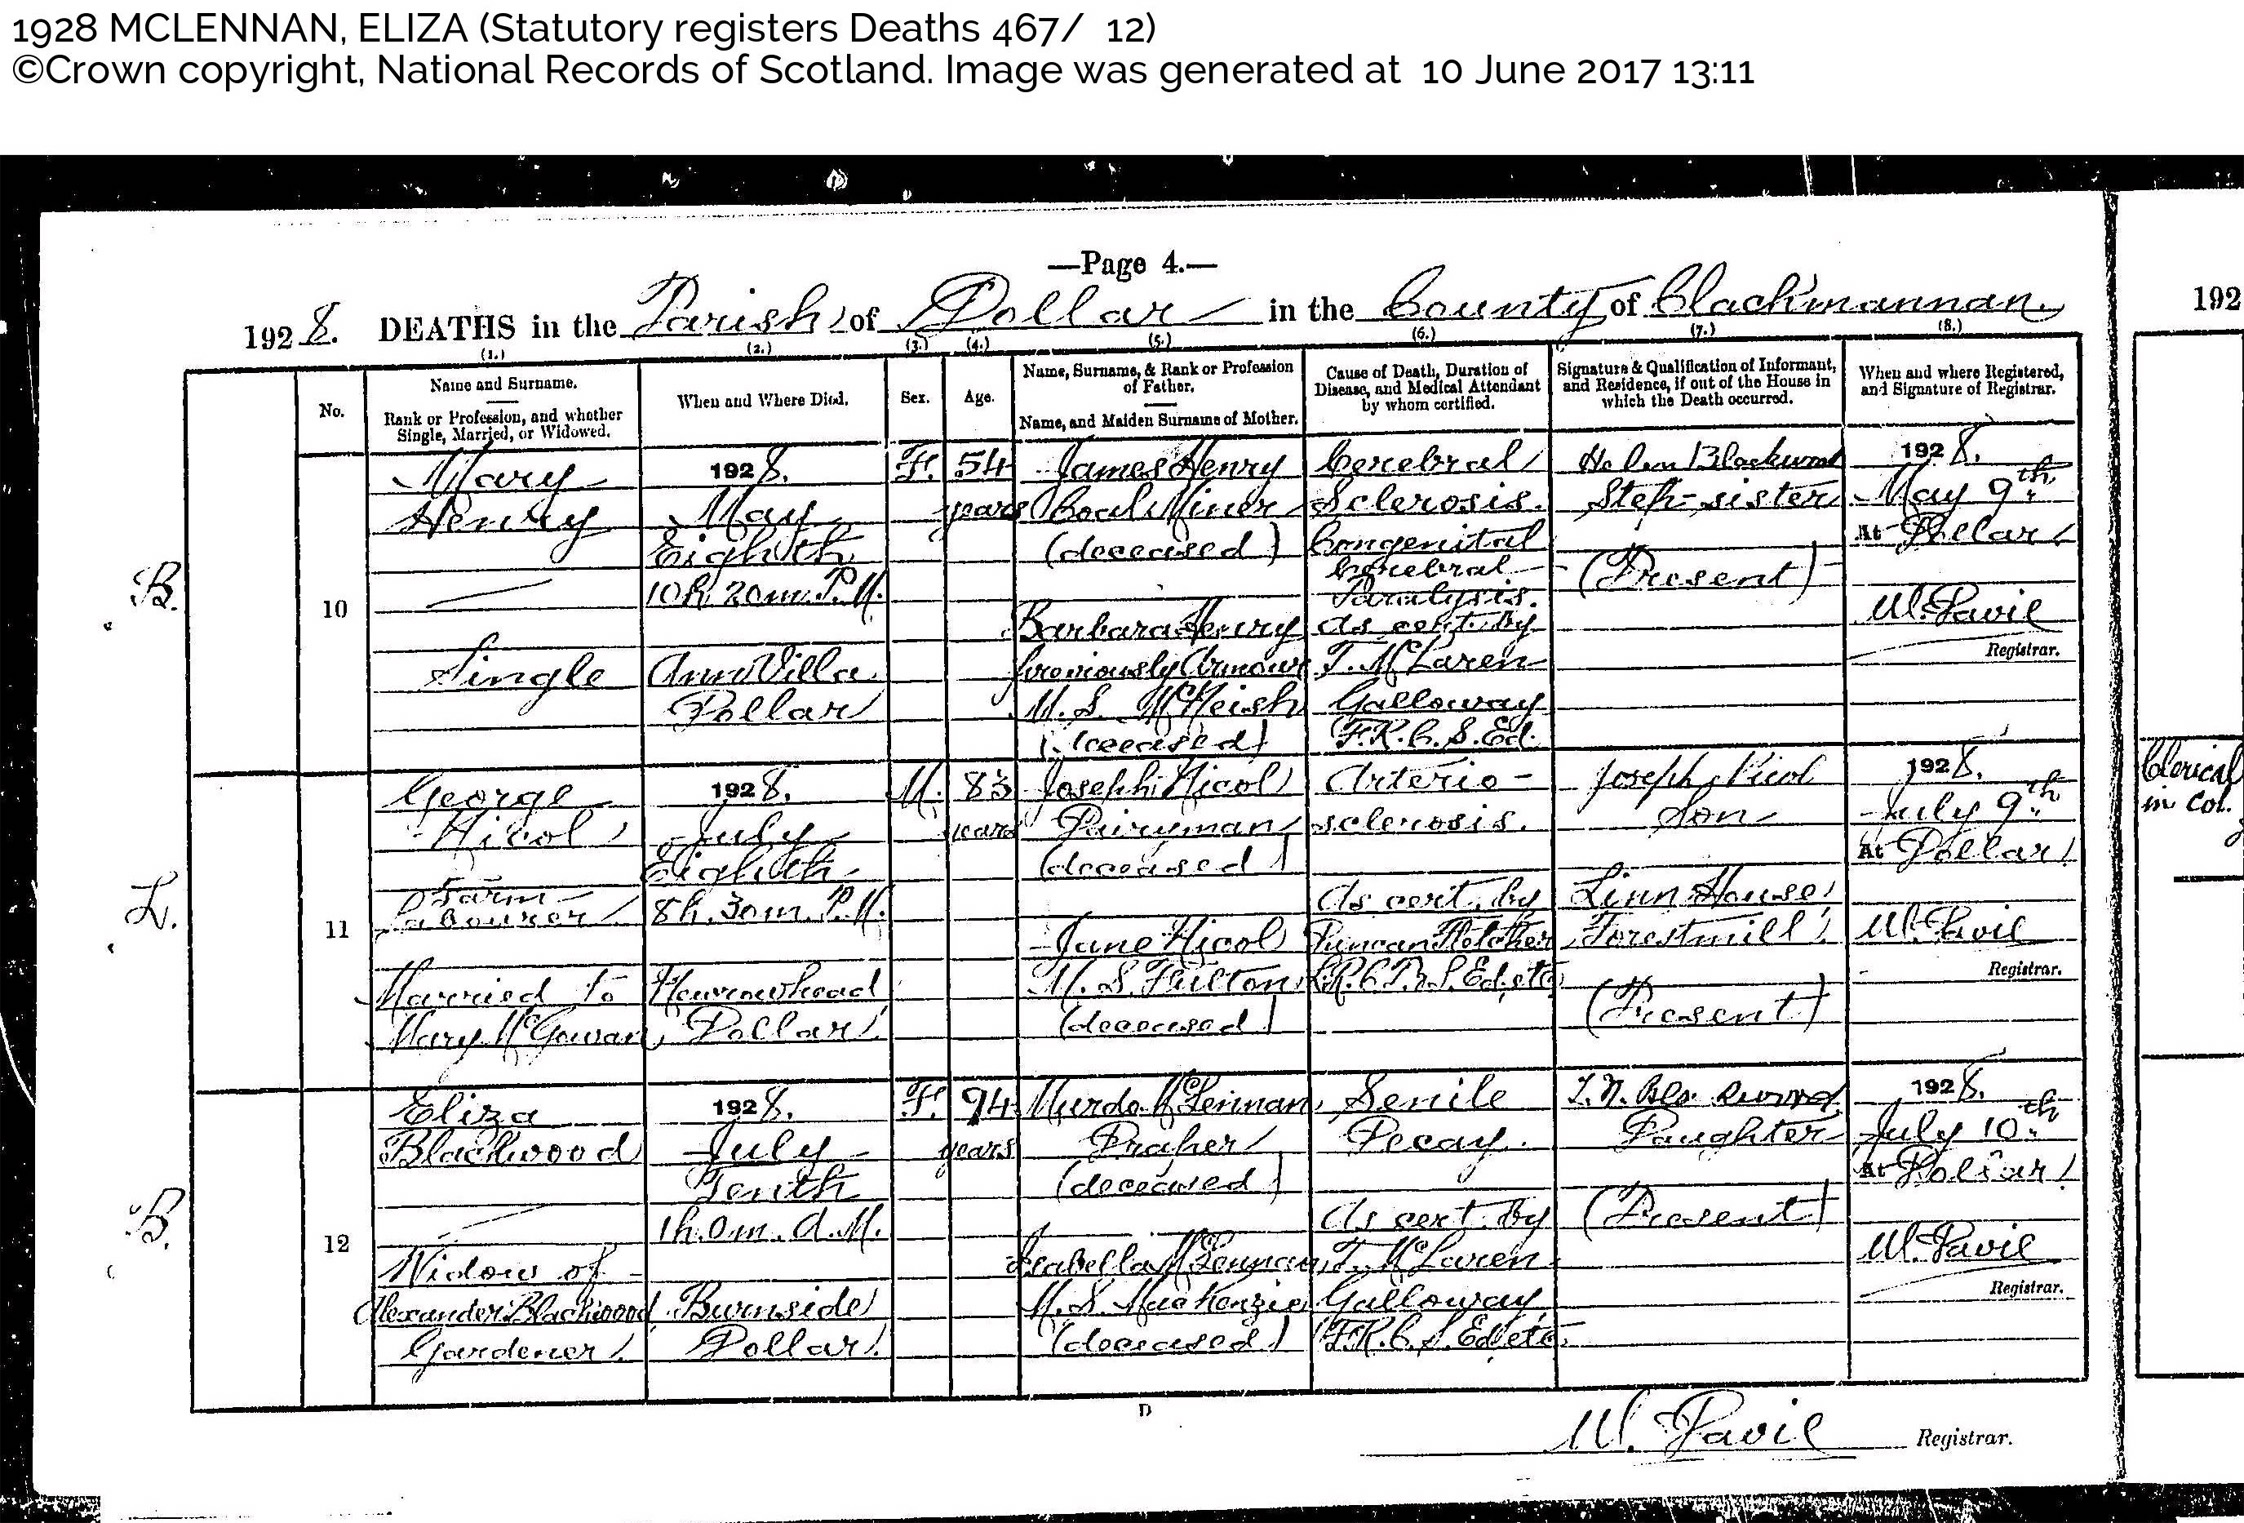 1928 MCLENNAN, ELIZA (Statutory registers Deaths 467/ 12)
©Crown copyright, National Records of Scotland. Image was generated at 10 June 2017 13:11
—Page 4.—
1928. DEATHS in the Parish of Dollar in the County of Clackmannan.
192
(1.) (2.) (3.) (4.) (5.) (6.) (7.) (8.)
No.
Name and Surname.
Rank or Profession, and whether
Single, Married, or Widowed.
When and Where Died.
Sex.
Age.
Name, Surname, & Rank or Profession
of Father.
Name, and Maiden Surname of Mother.
Cause of Death, Duration of
Disease, and Medical Attendant
by whom certified.
Signature & Qualification of Informant,
and Residence, if out of the House in
which the Death occurred.
When and where Registered,
and Signature of Registrar.
B.
10
Mary
Henry
Single
1928.
May
Eighth
10h. 20m. P.M.
Ann Villa
Dollar
F.
54
years
James Henry
Coal Miner
(deceased)
Barbara Henry
previously Armour
M.S. McNeish
(deceased)
Cerebral
Sclerosis.
Congenital
Cerebral
Paralysis.
As cert. by
T. McLaren
Galloway
F.R.C.S.Ed.
Helen Blackwood
Step-sister
(Present)
1928.
May 9th.
At Dollar
W. Davie
Registrar.
L.
11
George
Nicol
Farm
Labourer
Married to
Mary McGowan
1928.
July
Eighth
8h. 30m. P.M.
Dollar
M.
83
years
Joseph Nicol
Dairyman
(deceased)
Jane Nicol
M.S. Fulton
(deceased)
Arterio-
sclerosis.
As cert. by
Duncan Fletcher
L.R.C.P. & S. Ed. etc
Joseph Nicol
Son
Linn House
Forestmill
(Present)
1928.
July 9th.
At Dollar
W. Davie
Registrar.
Clerical
in Col.
B.
12
Eliza
Blackwood
Widow of
Alexander Blackwood
Gardener.
1928.
July
Tenth
1h. 0m. A.M.
Burnside
Dollar.
F.
94
years
Murdo McLennan
Draper
(deceased)
Isabella McLennan
M.S. MacKenzie
(deceased)
Senile
Decay.
As cert. by
T. McLaren
Galloway
F.R.C.S. Ed. etc.
Blackwood
Daughter
(Present)
1928.
July 10th.
At Dollar
W. Davie
Registrar.
D
W. Davie Registrar.